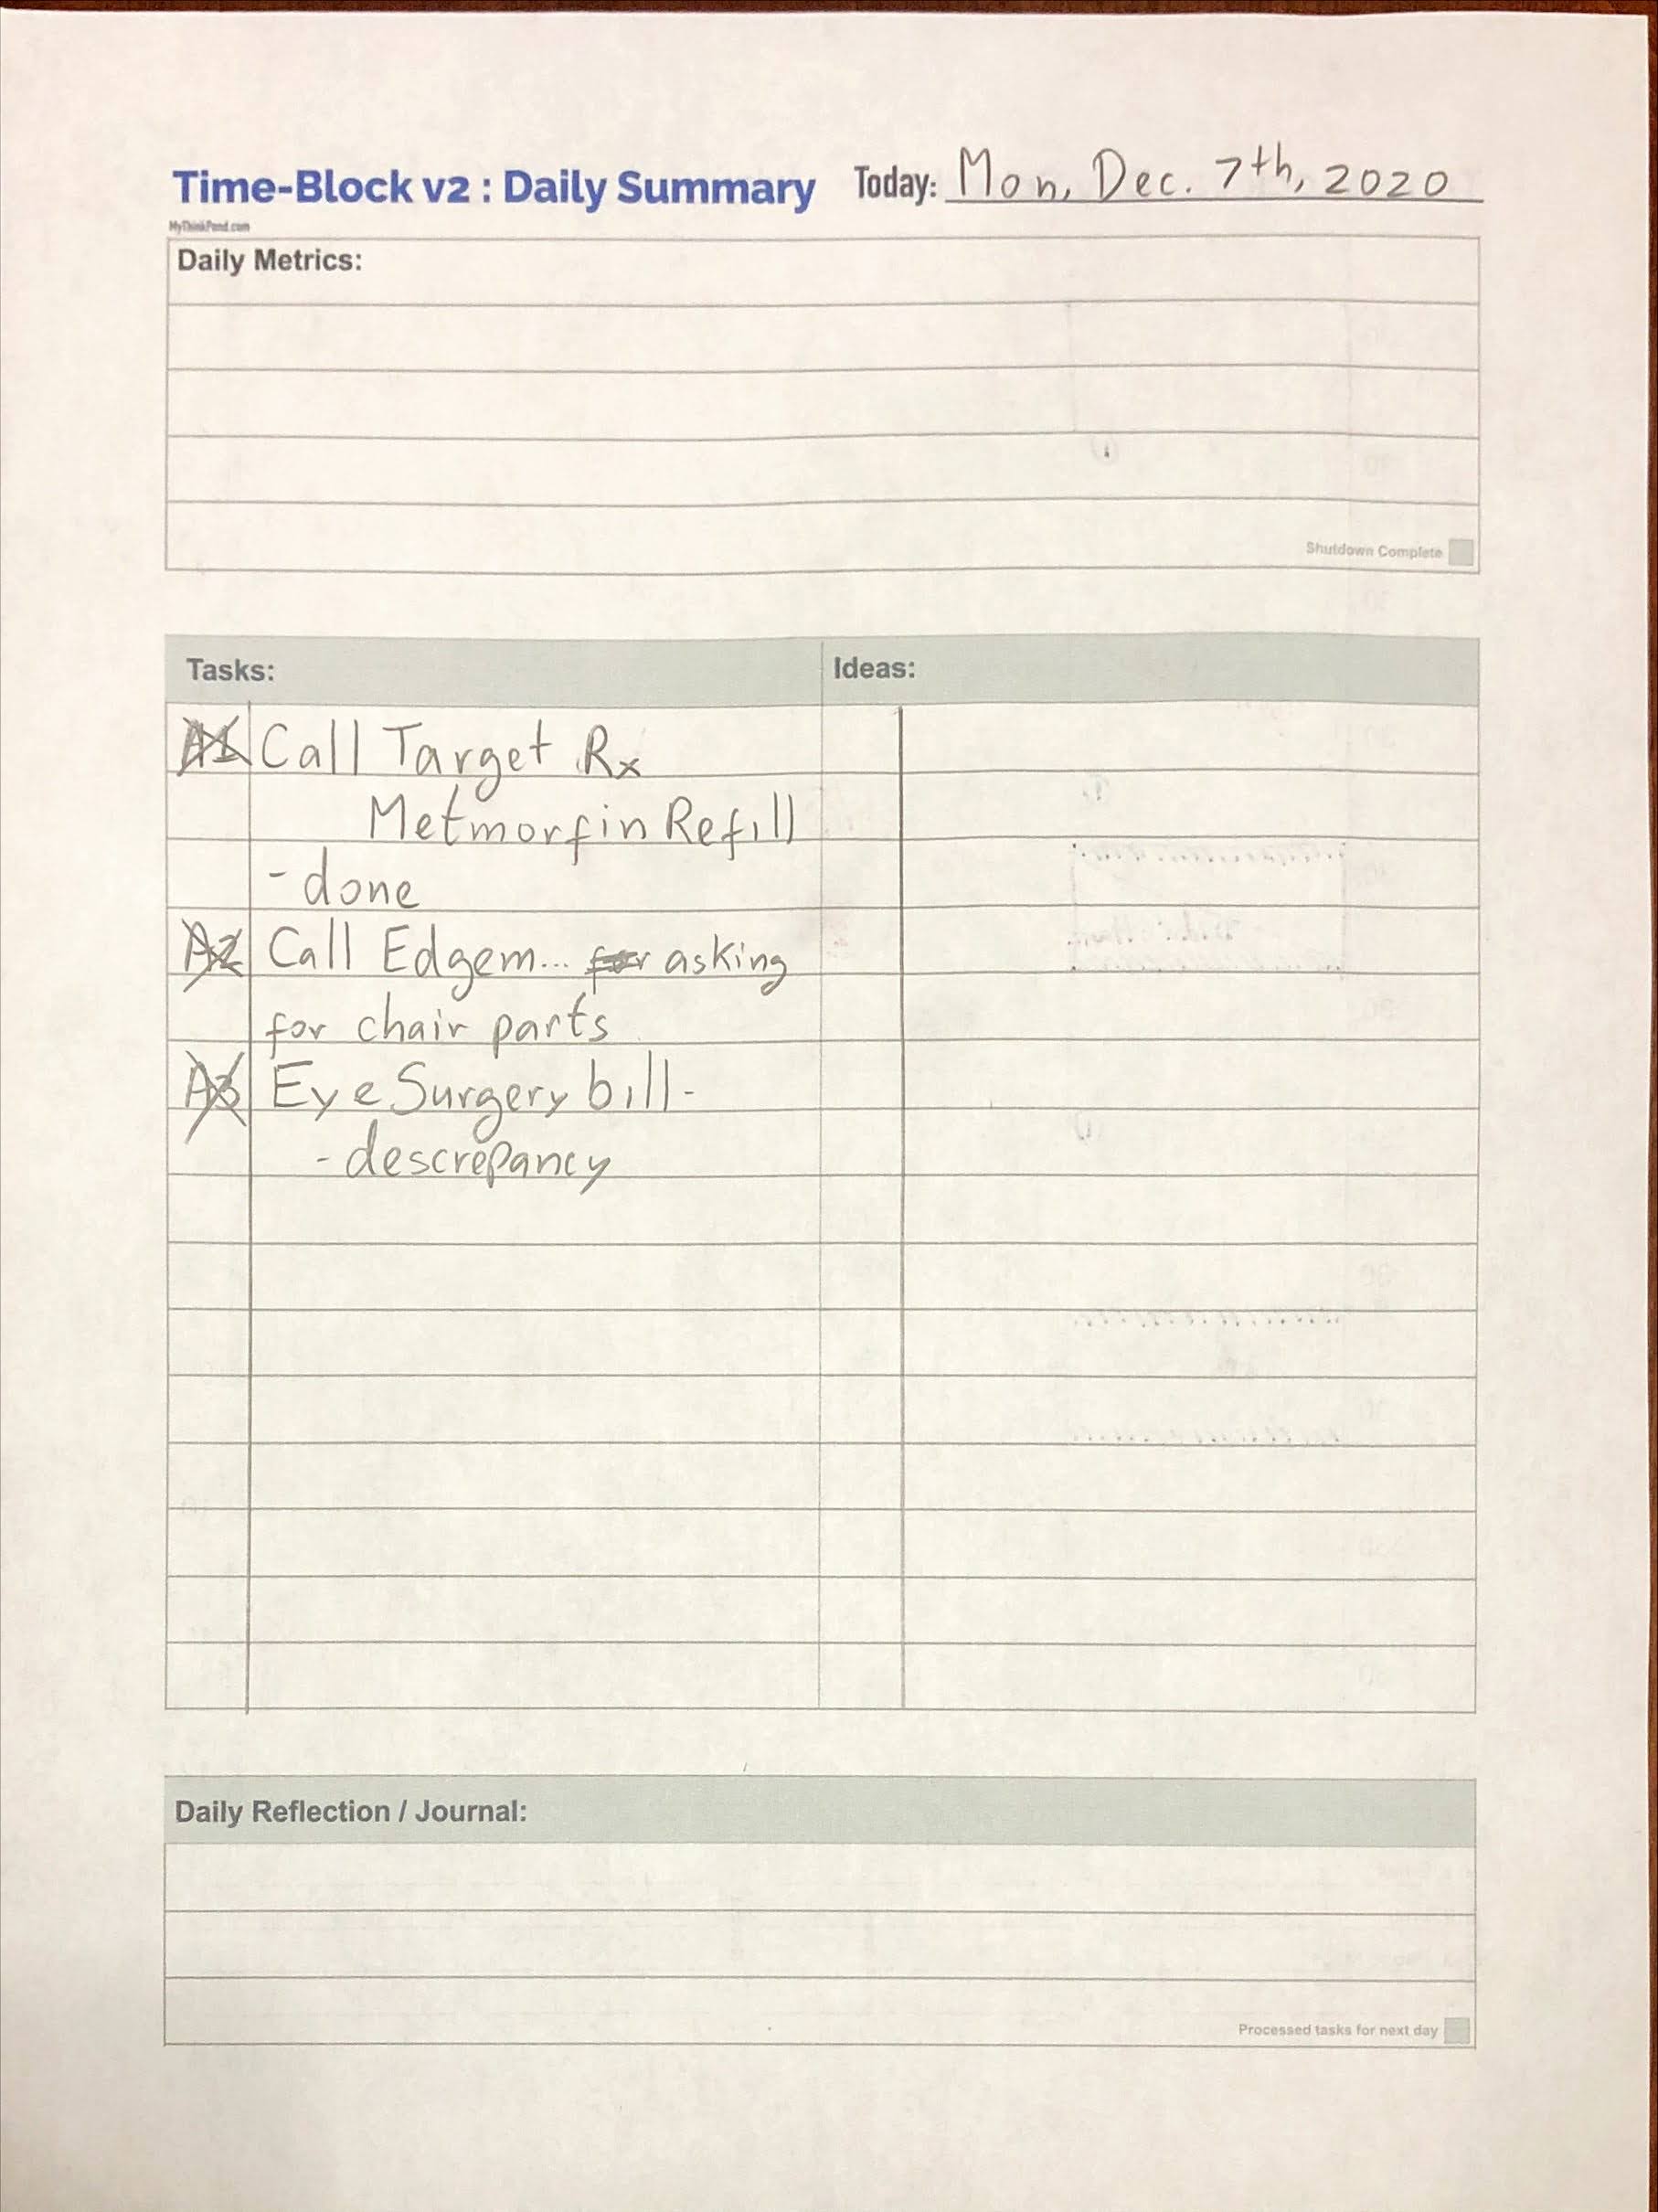 Time-Block v2 : Daily Summary Today: Mon, Dec. 7th, 2020
MyThinkPond.com
Daily Metrics:
Shutdown Complete
Tasks: Ideas:
A1 Call Target Rx
Metmorfin Refill
- done
A2 Call Edgem... for asking
for chair parts
A3 Eye Surgery bill -
- descrepancy
Daily Reflection / Journal:
Processed tasks for next day